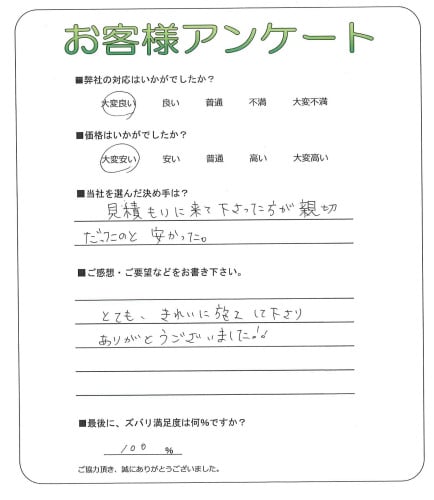 お客様アンケート
■弊社の対応はいかがでしたか？
大変良い 良い 普通 不満 大変不満
■価格はいかがでしたか？
大変安い 安い 普通 高い 大変高い
■当社を選んだ決め手は？
見積もりに来て下さった方が親切
だったのと 安かった。
■ご感想・ご要望などをお書き下さい。
とても、きれいに施工して下さり
ありがとうございました!!
■最後に、ズバリ満足度は何%ですか？
100 %
ご協力頂き、誠にありがとうございました。